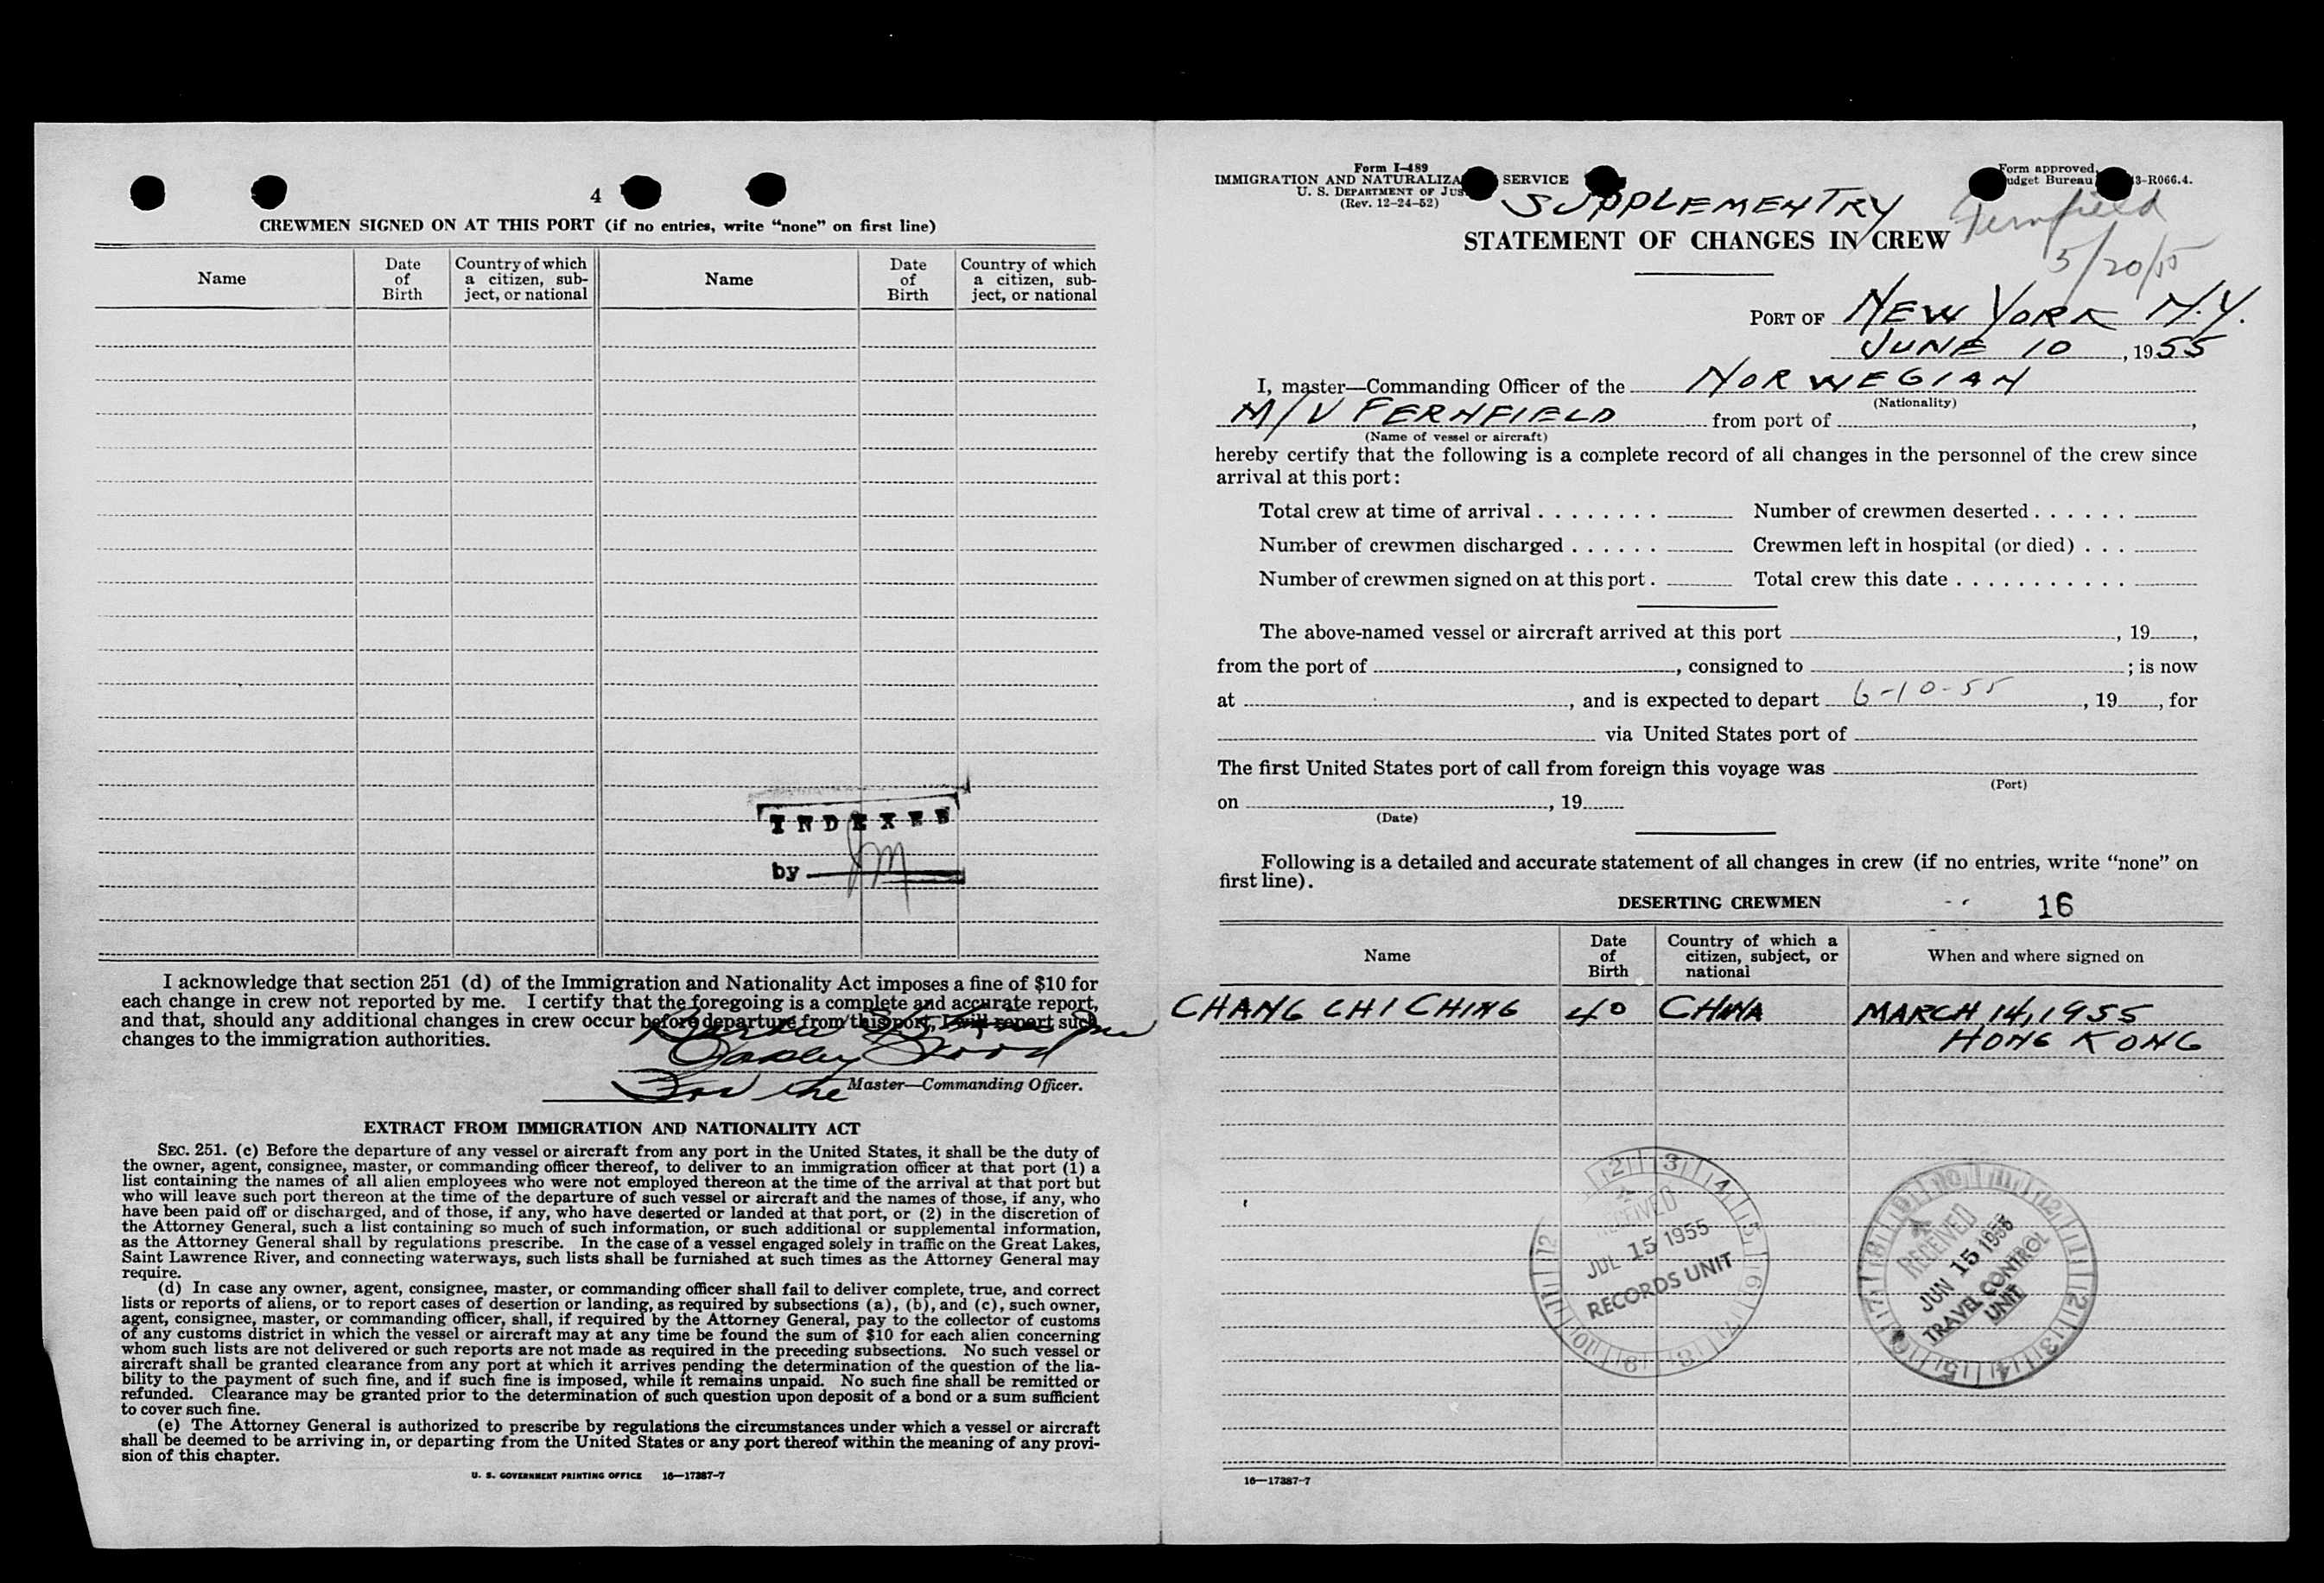 4
CREWMEN SIGNED ON AT THIS PORT (if no entries, write “none” on first line)
Name
Date of Birth
Country of which a citizen, sub-ject, or national
Name
Date of Birth
Country of which a citizen, sub-ject, or national
INDEXED
by
I acknowledge that section 251 (d) of the Immigration and Nationality Act imposes a fine of $10 for
each change in crew not reported by me. I certify that the foregoing is a complete and accurate report,
and that, should any additional changes in crew occur before departure from this port, I will report such
changes to the immigration authorities.
Oakley Wood
For the Master—Commanding Officer.
EXTRACT FROM IMMIGRATION AND NATIONALITY ACT
SEC. 251. (c) Before the departure of any vessel or aircraft from any port in the United States, it shall be the duty of
the owner, agent, consignee, master, or commanding officer thereof, to deliver to an immigration officer at that port (1) a
list containing the names of all alien employees who were not employed thereon at the time of the arrival at that port but
who will leave such port thereon at the time of the departure of such vessel or aircraft and the names of those, if any, who
have been paid off or discharged, and of those, if any, who have deserted or landed at that port, or (2) in the discretion of
the Attorney General, such a list containing so much of such information, or such additional or supplemental information,
as the Attorney General shall by regulations prescribe. In the case of a vessel engaged solely in traffic on the Great Lakes,
Saint Lawrence River, and connecting waterways, such lists shall be furnished at such times as the Attorney General may
require.
(d) In case any owner, agent, consignee, master, or commanding officer shall fail to deliver complete, true, and correct
lists or reports of aliens, or to report cases of desertion or landing, as required by subsections (a), (b), and (c), such owner,
agent, consignee, master, or commanding officer, shall, if required by the Attorney General, pay to the collector of customs
of any customs district in which the vessel or aircraft may at any time be found the sum of $10 for each alien concerning
whom such lists are not delivered or such reports are not made as required in the preceding subsections. No such vessel or
aircraft shall be granted clearance from any port at which it arrives pending the determination of the question of the lia-
bility to the payment of such fine, and if such fine is imposed, while it remains unpaid. No such fine shall be remitted or
refunded. Clearance may be granted prior to the determination of such question upon deposit of a bond or a sum sufficient
to cover such fine.
(e) The Attorney General is authorized to prescribe by regulations the circumstances under which a vessel or aircraft
shall be deemed to be arriving in, or departing from the United States or any port thereof within the meaning of any provi-
sion of this chapter.
U. S. GOVERNMENT PRINTING OFFICE 16—17387-7
Form I-489
IMMIGRATION AND NATURALIZA SERVICE
U. S. DEPARTMENT OF JUS
(Rev. 12-24-52)
Form approved.
udget Bureau 3-R066.4.
SUPPLEMENTRY
Fernfield
5/20/55
STATEMENT OF CHANGES IN CREW
PORT OF NEW YORK N.Y.
JUNE 10, 1955
I, master—Commanding Officer of the NORWEGIAN
(Nationality)
M/V FERNFIELD from port of ,
(Name of vessel or aircraft)
hereby certify that the following is a complete record of all changes in the personnel of the crew since
arrival at this port:
Total crew at time of arrival . . . . . . . . Number of crewmen deserted . . . . . .
Number of crewmen discharged . . . . . . Crewmen left in hospital (or died) . . .
Number of crewmen signed on at this port . Total crew this date . . . . . . . . . . .
The above-named vessel or aircraft arrived at this port , 19 ,
from the port of , consigned to ; is now
at , and is expected to depart 6-10-55 , 19 , for
via United States port of
The first United States port of call from foreign this voyage was
(Port)
on , 19
(Date)
Following is a detailed and accurate statement of all changes in crew (if no entries, write “none” on
first line).
DESERTING CREWMEN
16
Name
Date of Birth
Country of which a citizen, subject, or national
When and where signed on
CHANG CHI CHING 40 CHINA MARCH 14, 1955
HONG KONG
RECEIVED
JUL 15 1955
RECORDS UNIT
RECEIVED
JUN 15 1955
TRAVEL CONTROL
UNIT
16—17387-7